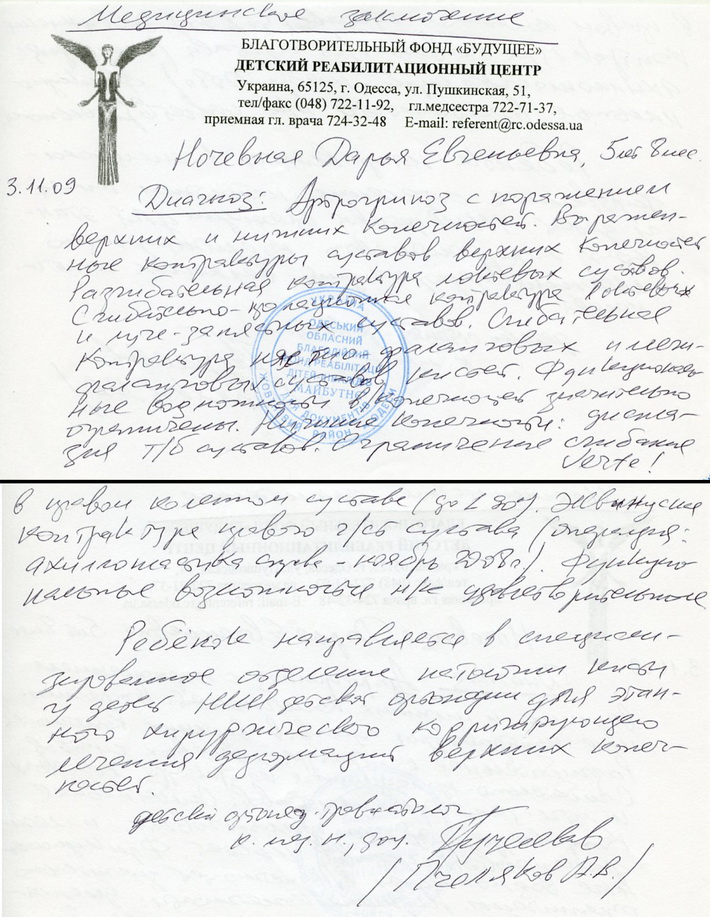 Медицинское заключение
БЛАГОТВОРИТЕЛЬНЫЙ ФОНД «БУДУЩЕЕ»
ДЕТСКИЙ РЕАБИЛИТАЦИОННЫЙ ЦЕНТР
Украина, 65125, г. Одесса, ул. Пушкинская, 51,
тел/факс (048) 722-11-92, гл.медсестра 722-71-37,
приемная гл. врача 724-32-48 E-mail: referent@rc.odessa.ua
Ночевная Дарья Евгеньевна, 5 лет 8 мес.
3.11.09
Диагноз: Артрогрипоз с поражением
верхних и нижних конечностей. Выражен-
ные контрактуры суставов верхних конечностей
Разгибательная контрактура локтевых суставов.
Сгибательно- контрактура локтевых
и луче-запястных суставов. Сгибательная
контрактура пястно фаланговых и меж-
фаланговых суставов кистей. Функциональ-
ные возможности в/конечностей значительно
ограничены. Нижние конечности: диспла-
зия т/б суставов. Ограничение сгибания
Verte!
в правом коленном суставе (до ). Эквинусная
контрактура правого г/ст сустава (операция:
ахиллопластика справа - ноябрь 2008г). Функцио
нальные возможности н/к удовлетворительные
Ребёнок направляется в специали-
зированное отделение патологии кисти
у детей НИИ детской ортопедии для этап-
ного хирургического корригирующего
лечения деформаций верхних конеч-
ностей.
детский ортопед-травматолог
к. мед. н., доц.
/Пчеляков А.В./
УКРАЇНА
ОДЕСЬКИЙ
ОБЛАСНИЙ
БЛАГОДІЙНИЙ
РЕАБІЛІТАЦІЇ
МАЙБУТНЄ
ДОКУМЕНТІВ
РАЙОН